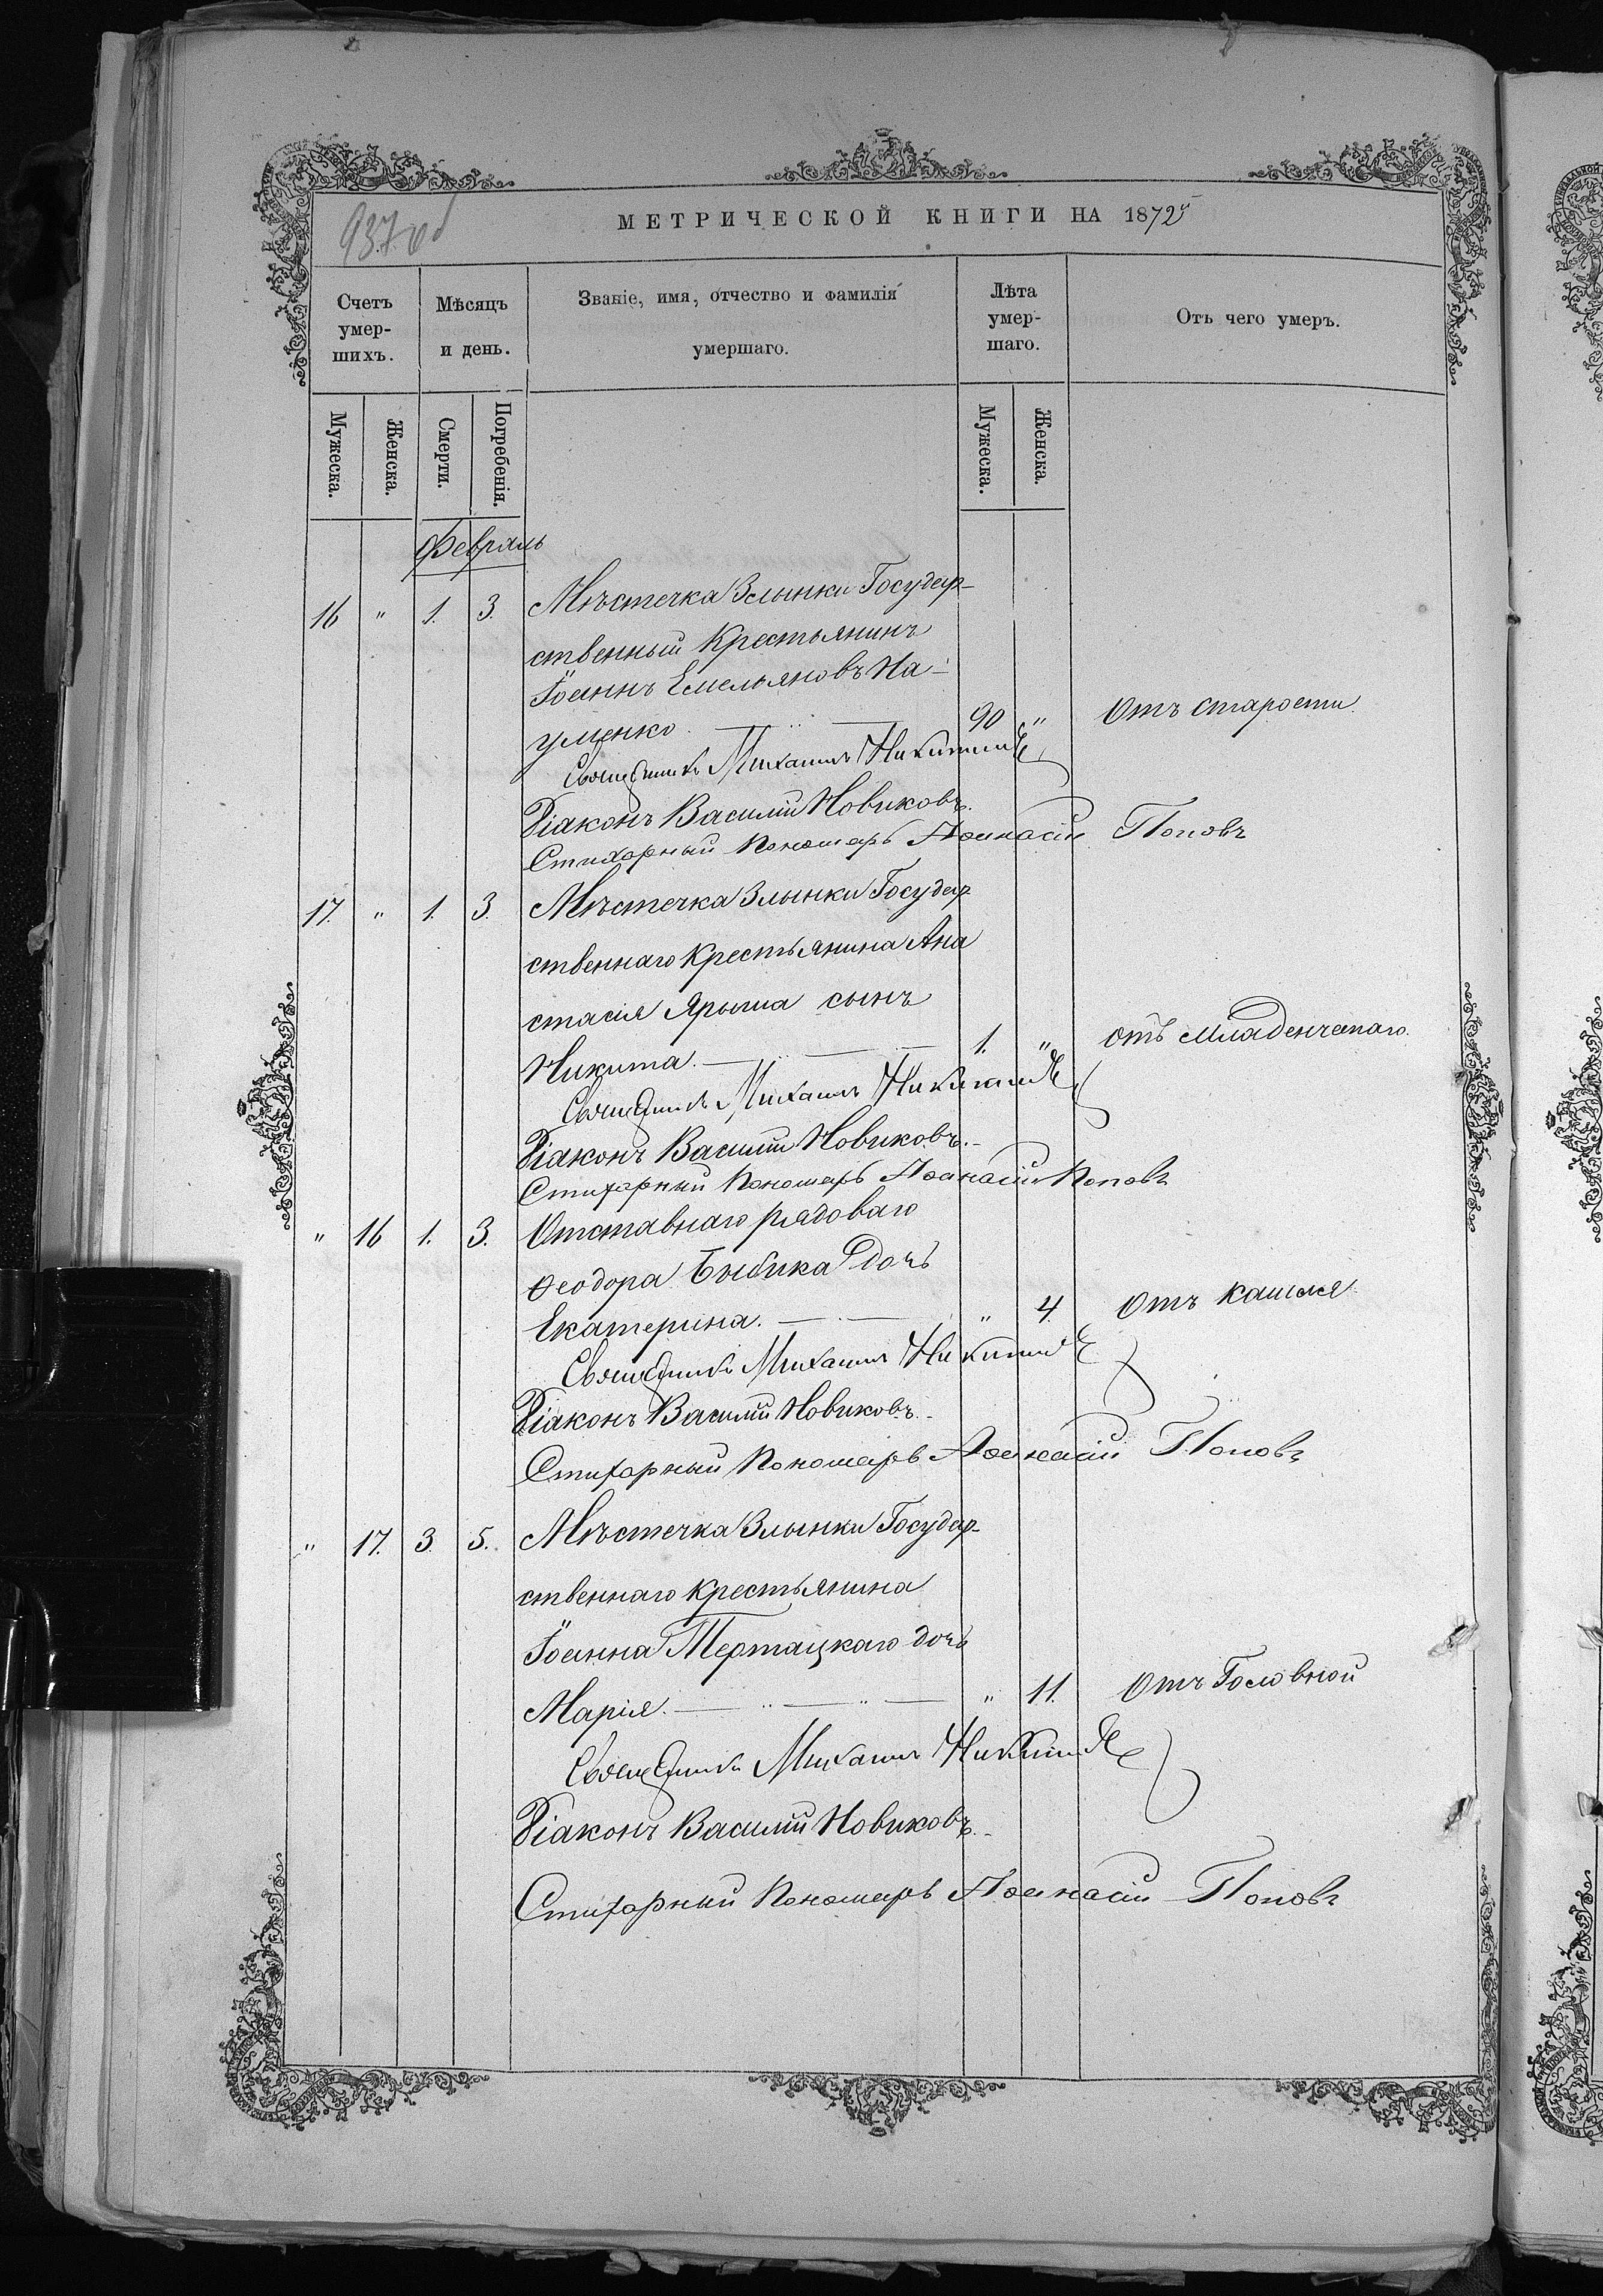 937 об
МЕТРИЧЕСКОЙ КНИГИ НА 1872
Счетъ умер-шихъ.
Мѣсяцъ и день.
Званіе, имя, отчество и фамилія умершаго.
Лѣта умер-шаго.
Отъ чего умеръ.
Мужеска.
Женска.
Смерти.
Погребенія.
Мужеска.
Женска.
Февраль
16 " 1. 3. Мѣстечка Злынки Государ-
ственный крестьянинъ
Іоаннъ Емельяновъ На-
уменко. 90 " Отъ старости
Священникъ Михаилъ
Діаконъ Василій Новиковъ.
Стихарный Пономарь Аѳанасій Поповъ
17. " 1. 3. Мѣстечка Злынки Государ
ственнаго крестьянина Ана
стасія Ярыша сынъ
Никита. 1. " отъ младенческаго.
Священникъ Михаилъ
Діаконъ Василій Новиковъ.
Стихарный Пономарь Аѳанасій Поповъ
" 16 1. 3. Отставнаго рядоваго
Ѳеодора Бибика дочь
Екатерина. " 4. Отъ кашля
Священникъ Михаилъ
Діаконъ Василій Новиковъ.
Стихарный Пономарь Аѳанасій Поповъ
" 17. 3. 5. Мѣстечка Злынки Государ-
ственнаго крестьянина
Іоанна Тертацкаго дочь
Марія. " 11. Отъ Головной
Священникъ Михаилъ
Діаконъ Василій Новиковъ.
Стихарный Пономарь Аѳанасій Поповъ